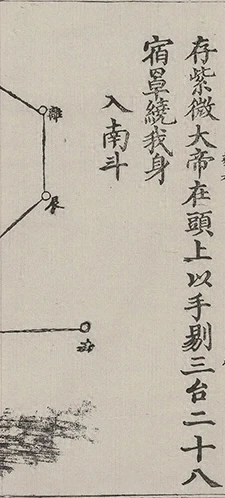 存紫微大帝在頭上以手剔三台二十八
宿罩繞我身
入南斗
辰